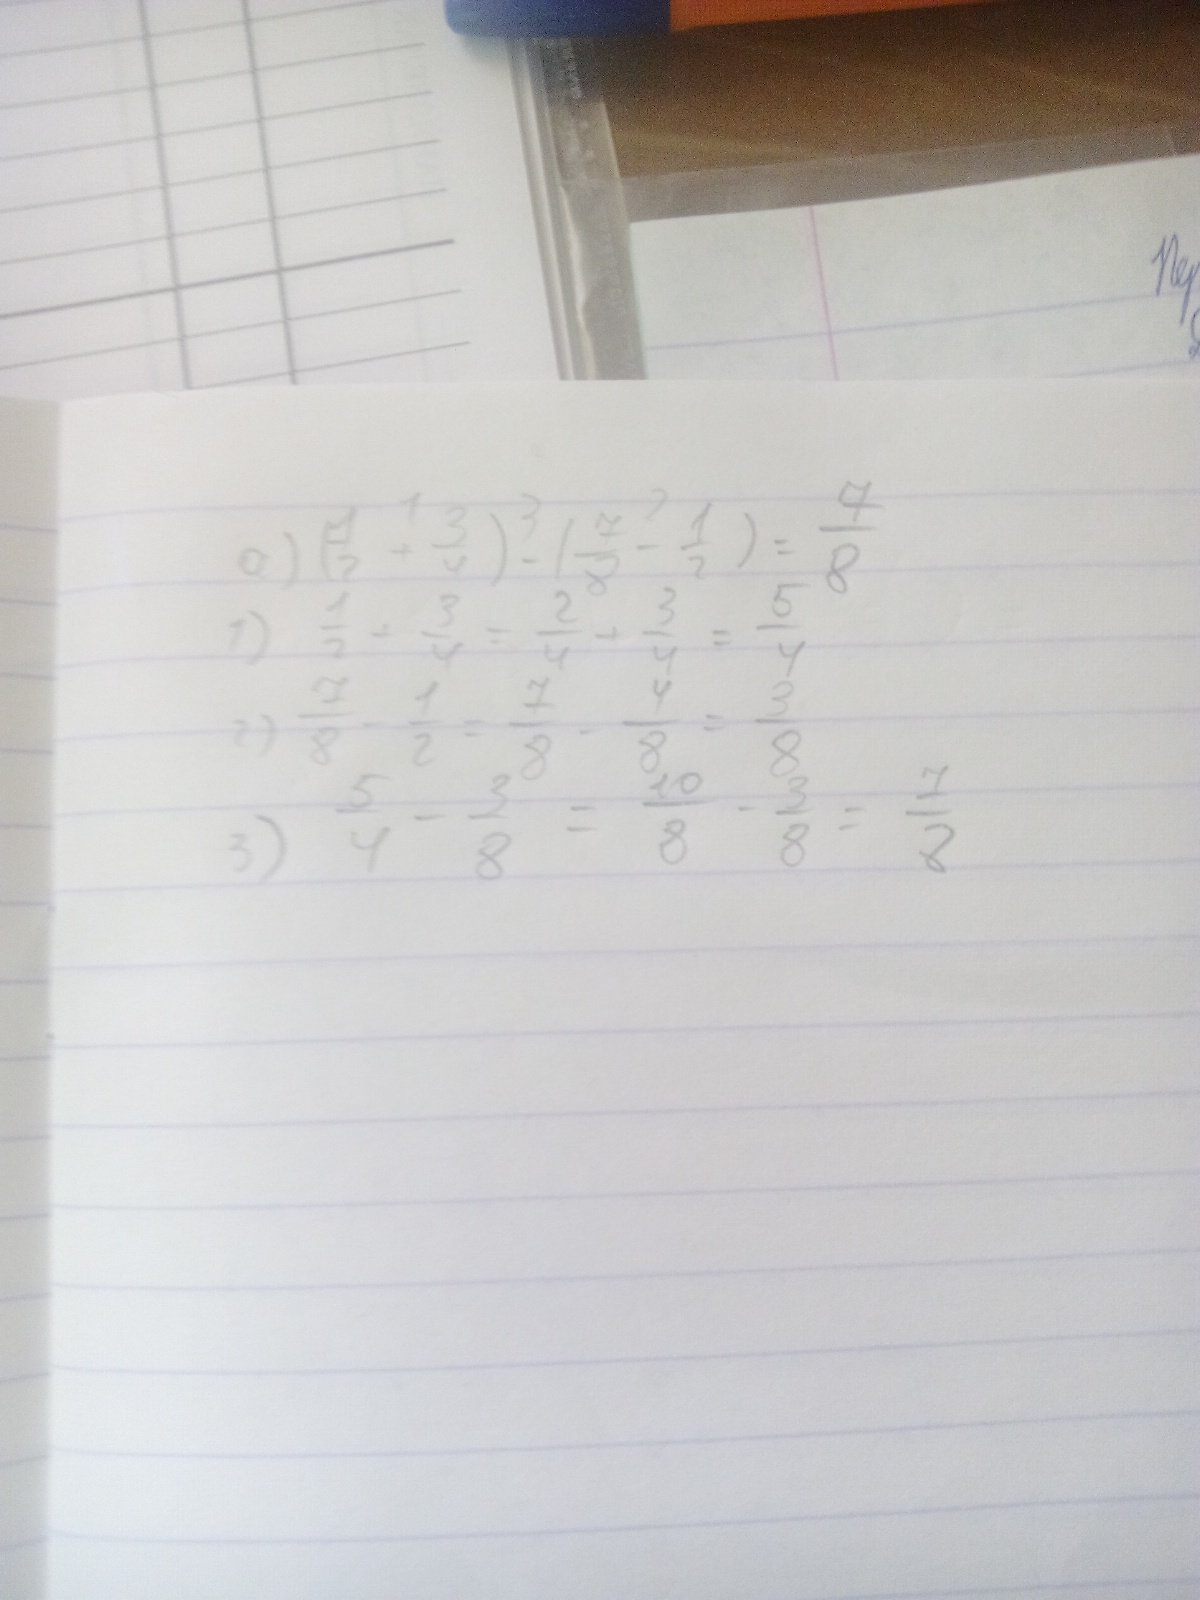 Пер
а) (1/2 + 3/4) - (7/8 - 1/2) = 7/8
1) 1/2 + 3/4 = 2/4 + 3/4 = 5/4
2) 7/8 - 1/2 = 7/8 - 4/8 = 3/8
3) 5/4 - 3/8 = 10/8 - 3/8 = 7/8